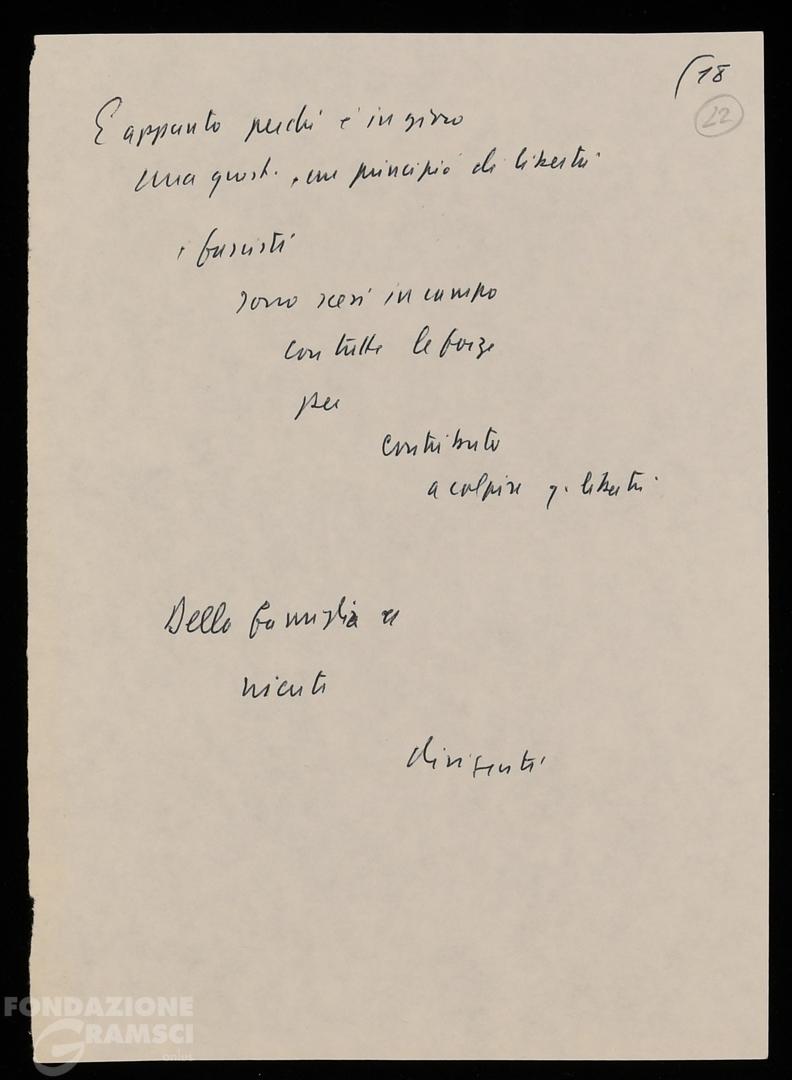 (18
22
E appunto perché è in giuoco
una quest. , un principio di libertà
i fascisti
sono scesi in campo
con tutte le forze
per
contributo
a colpire q. libertà
Della famiglia
niente
dirigenti
FONDAZIONE
GRAMSCI
onlus